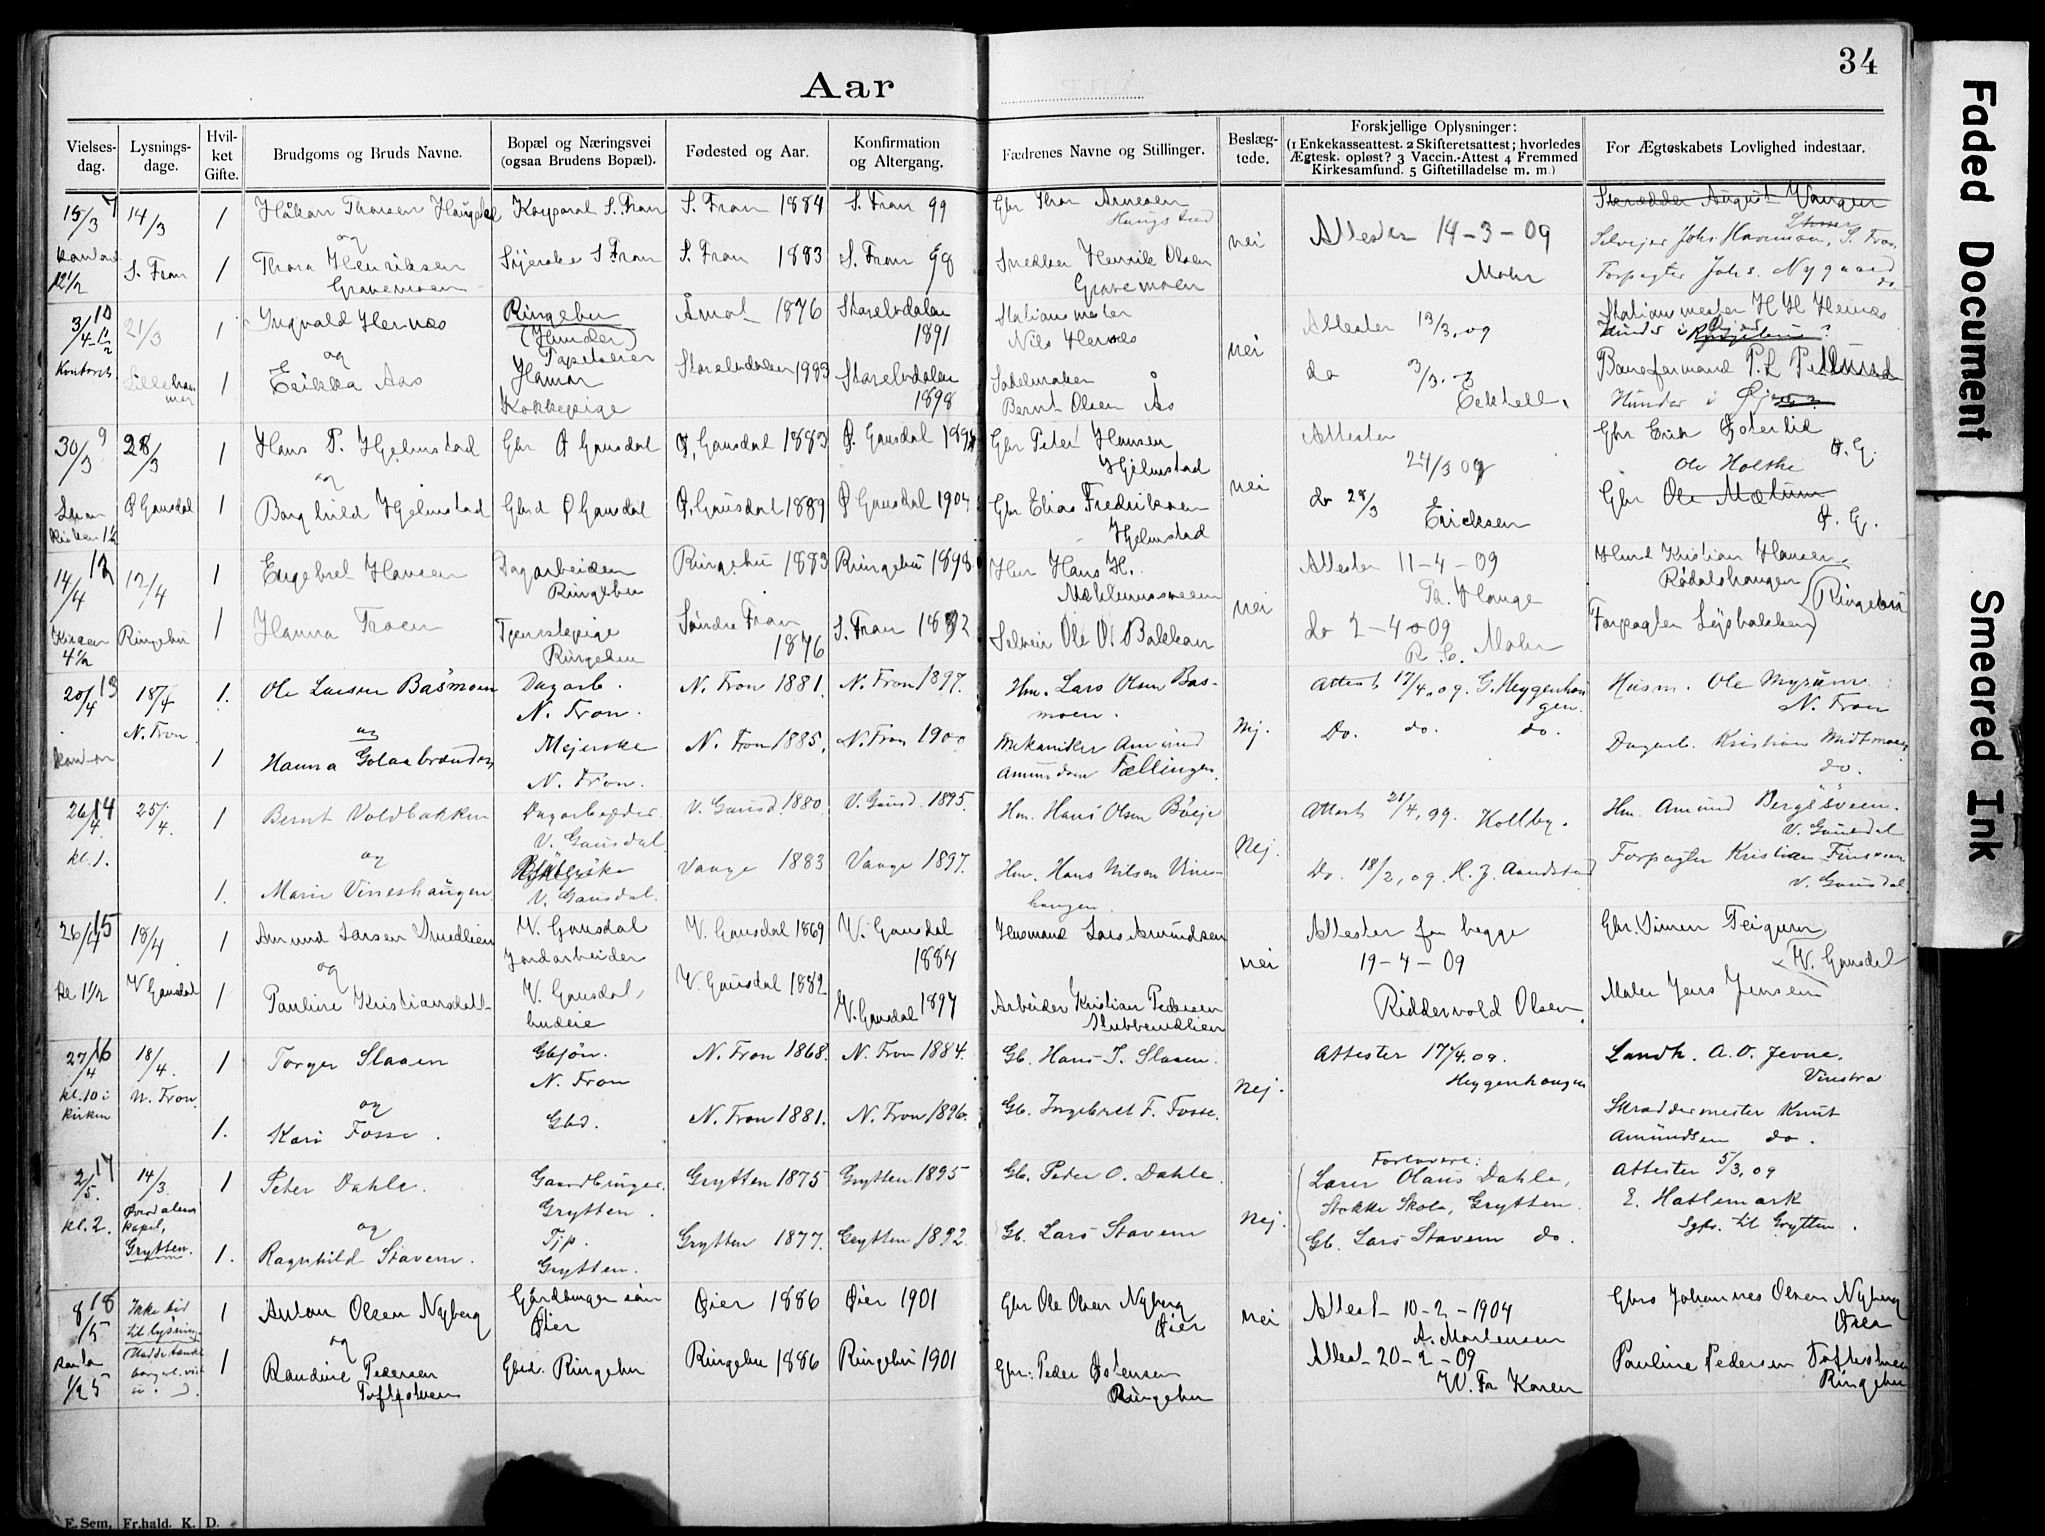 34
Aar
Vielses-dag.
Lysnings-dage.
Hvil-ket Gifte.
Brudgoms og Bruds Navne.
Bopæl og Næringsvei (ogsaa Brudens Bopæl).
Fødested og Aar.
Konfirmation og Altergang.
Fædrenes Navne og Stillinger.
Beslæg-tede.
Forskjellige Oplysninger:
(1 Enkekasseattest. 2 Skifteretsattest; hvorledes
Ægtesk. opløst? 3 Vaccin.-Attest 4 Fremmed
Kirkesamfund. 5 Giftetilladelse m. m.)
For Ægteskabets Lovlighed indestaar.
15/3 7 14/3 1 Håkon Thorsen Korporal S. Fron S. Fron 1884 S. Fron 99 Gbr Thor Arnesen
nei Attester 14-3-09 Mohr
og
12 1/2 S. Fron 1 Thora Henriksen Gravemoen Syerske S Fron S. Fron 1883 S. Fron 98 Snedker Henrik Olsen Gravemoen
Forpagter Johs. Nygaard do.
3/4 10 21/3 1 Ingvald Hernæs Ringebu (Hunder) Åmot 1876 Storelvdalen 1891 Stationsmester Nils Hernæs
nei Attester 13/3, 09 Stationsmester H H Hernæs
og
Kontoret Lillehammer 1 Erikka Aas Hamar Kokkepige Storelvdalen 1883 Storelvdalen 1898 Sadelmaker Bernt Olsen Ås
do 3/3.
Hunder i Øjer
30/3 9 28/3 1 Hans P. Hjelmstad Gbr Ø Gausdal Ø. Gausdal 1883 Ø. Gausdal Gbr Peter Hansen Hjelmstad
nei Attester 24/3 09 Gbr Erik Ø. G.
og
Ø Gausdal 1 Borghild Hjelmstad Gbrd Ø Gausdal Ø. Gausdal 1889 Ø Gausdal 1904 Gbr Elias Fredriksen Hjelmstad
do 28/3 Ericksen Gbr Ole Mælum Ø. G.
14/4 12 12/4 1 Engebret Hansen Dagarbeider Ringebu Ringebu 1883 Ringebu 1898 Hmr Hans H.
nei Attester 11-4-09 Th. Hauge Hmd Kristian Hansen Ringebu
Kirken 4 1/2 Ringebu 1 Hanna Troen Tjenestepige Ringebu Søndre Fron 1876 S. Fron 1892 Selveier Ole O. Bakken
do 2-4-09 Mohr Forpagter
20/4 13 18/4 N. Fron. 1. Ole Larsen Basmoen Dagarb. N. Fron. N. Fron 1881. N. Fron 1897. Hm. Lars Olsen Bas-moen.
Nej. Attest 17/4.09. G. Heggenhougen. Husm. Ole Myrum N. Fron
og
1 Hanna Golaabranden Mejerske N. Fron. N. Fron 1885. N. Fron 1900 Mekaniker Amund Amundsen Fællingen.
Do. do. do. Dagarb. Kristian Midtmoen do.
26/4 14 25/4. 1 Bernt Voldbakken Dagarbejder V. Gausdal V. Gausd. 1880 V. Gausd. 1895. Hm. Hans Olsen Bøeje
Nej. Attest 21/4, 09. Kollby. Hm. Amund Bergssveen. V. Gausdal
kl. 1. og
1. Marie Vineshaugen V. Gausdal. Vaage 1883 Vaage 1897. Hm. Hans Nilsen Vines-haugen.
Do. 18/2, 09. H. J. Aandstad Forpagter Kristian V. Gausdal.
26/4 15 18/4 1 Amund Larsen Smedlien V. Gausdal Jordarbeider V. Gausdal 1869 V. Gausdal 1884 Husmand Lars Amundsen
nei Attester fra begge 19-4-09 Gbr. Simen Teigum V. Gausdal
og
kl 1 1/2 V Gausdal 1 Pauline Kristiansdatt. V. Gausdal, budeie V. Gausdal 1882 V. Gausdal 1897 Arbeider Kristian Pedersen Stubberudlien
Riddervold Olsen. Maler Jens Jensen
27/4 16 18/4. 1 Torger Slaaen Gbsjøn. N. Fron N. Fron 1868. N. Fron 1884. Gb. Hans T. Slaaen.
Nej. Attester 17/4.09. Heggenhougen Landh. A. O. Jevne. Vinstra
kl. 10 i kirken N. Fron. og
1. Kari Fosse. Gbd. N. Fron 1881. N. Fron 1896. Gb. Ingebret F. Fosse.
Skræddermester Knut Amundsen do.
2/5. 17 14/3. 1 Peter Dahle. Gaardbruger. Grytten. Grytten 1875 Grytten 1895 Gb. Peder O. Dahle.
Nej. Forlovere: Lærer Olaus Dahle, Stokke Skole, Grytten. Attester 5/3, 09
kl. 2. Øverdalens kapel, Grytten. og E. Hatlemark
1. Ragnhild Stavem. Tjp. Grytten. Grytten 1877. Grytten 1892. Gb. Lars Stavem
Gb. Lars Stavem do. Sgpr. til Grytten.
8/5 18 Ikke tid til lysning 1 Anton Olsen Nyberg Gårdbruger søn Øier Øier 1886 Øier 1901 Gbr Ole Olsen Nyberg Øier
nei Attest 10-2-1904 A. Mortensen Gbrs Johannes Olsen Nyberg
og
1 Randine Pedersen Gbrd. Ringebu Ringebu 1886 Ringebu 1901 Gbr. Peder Østensen Ringebu
Attest 20-2-09 Pauline Pedersen Ringebu
E. Sem, Fr.hald. K. D.
Faded Document
Smeared Ink